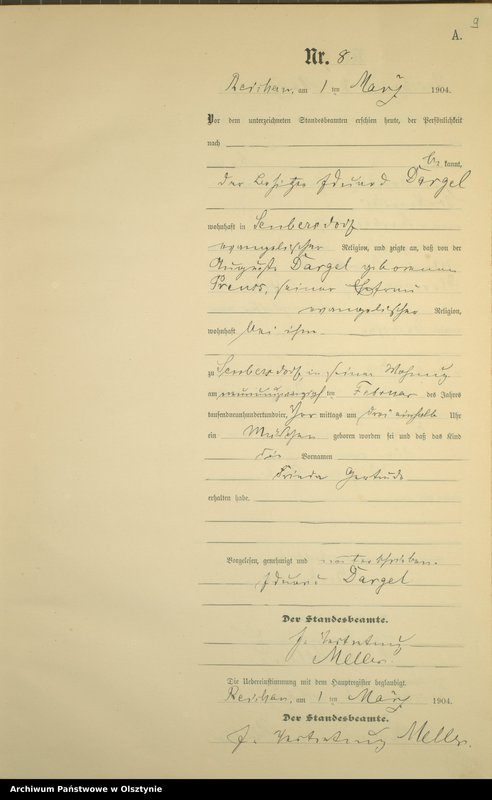 9
A.
Nr. 8.
Reichau, am 1 ten März 1904.
Vor dem unterzeichneten Standesbeamten erschien heute, der Persönlichkeit
nach
be kannt,
der Besitzer Eduard Dargel
wohnhaft in Senbersdorf
evangelischer Religion, und zeigte an, daß von der
Auguste Dargel geborenen
Preuss, seiner Ehefrau
evangelischer Religion,
wohnhaft bei ihm
zu Senbersdorf, in seiner Wohnung
am neunundzwanzigsten ten Februar des Jahres
tausendneunhundertundvier, Vor mittags um drei einhalb Uhr
ein Mädchen geboren worden sei und daß das Kind
die Vornamen
Frieda Gertrude
erhalten habe.
Vorgelesen, genehmigt und unterschrieben.
Eduard Dargel
Der Standesbeamte.
In Vertretung
Meller.
Die Uebereinstimmung mit dem Hauptregister beglaubigt.
Reichau, am 1 ten März 1904.
Der Standesbeamte.
In Vertretung Meller.
Archiwum Państwowe w Olsztynie